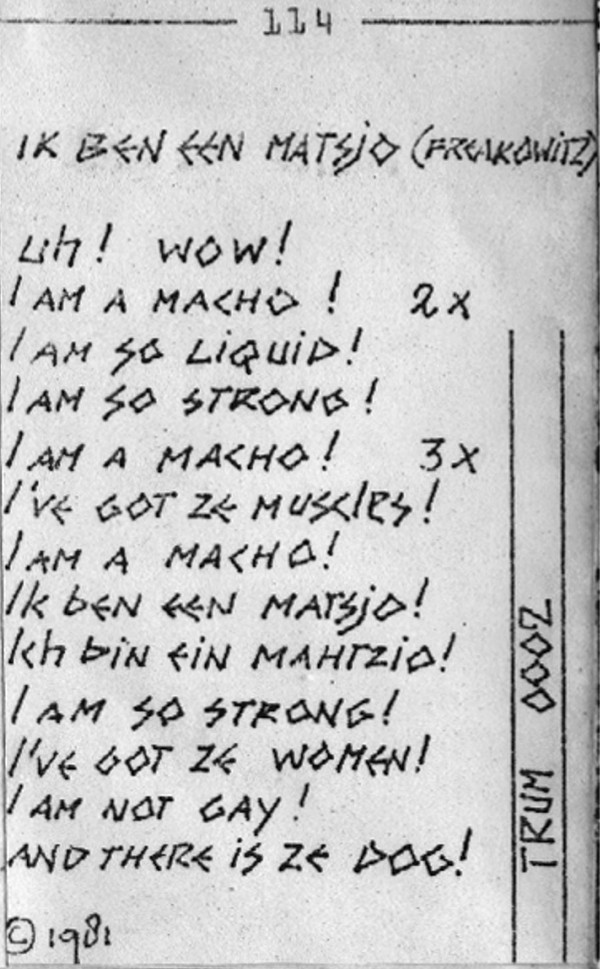 114
IK BEN EEN MATSJO (FREAKOWITZ)
Uh! WOW!
I AM A MACHO! 2x
I AM SO LiQUiD!
I AM SO STRONG!
I AM A MACHO! 3x
I'VE GOT ZE MUSCLES!
I AM A MACHO!
Ik bEN EEN MATSjO!
Ich biN EiN MAHTZiO!
I AM SO STRONG!
I'VE GOT ZE WOMEN!
I AM NOT GAY!
AND THERE iS ZE DOG!
© 1981
TRUM 0002